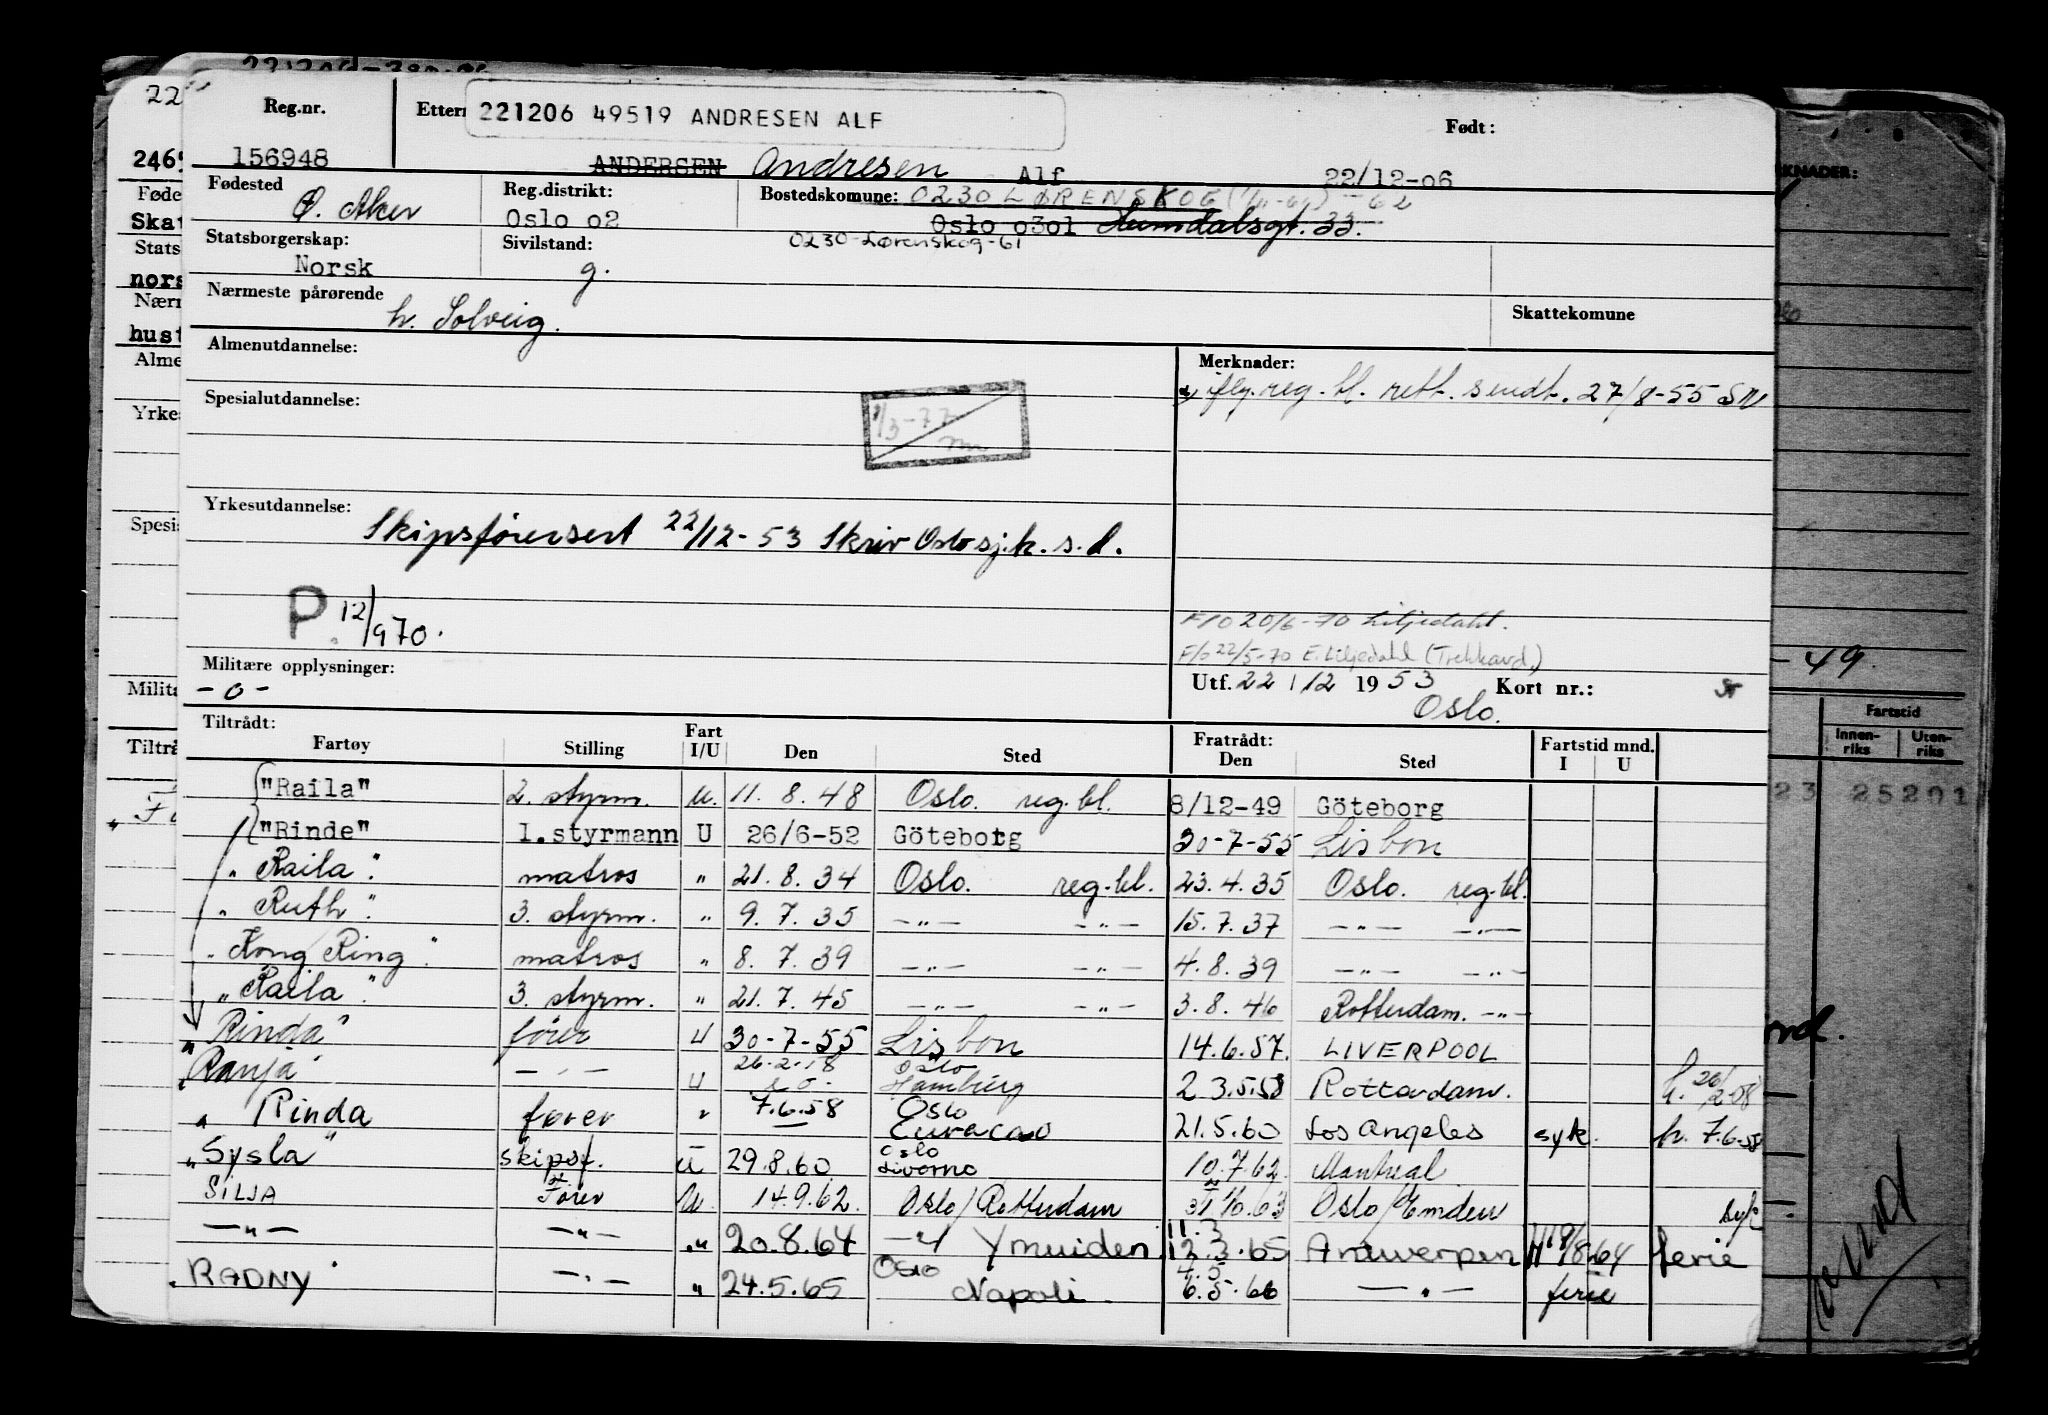 221206 49519 ANDRESEN ALF
Reg.nr. Født:
156948 ANDERSEN Andresen Alf 22/12-06
Fødested Reg.distrikt: Bostedskomune: 0230 LØRENSKOG
Ø. Aker Oslo 02 Oslo 0301 33.
Statsborgerskap: Sivilstand: 0230-Lørenskog-61
Norsk g.
Nærmeste pårørende Skattekomune
h. Solveig.
Almenutdannelse: Merknader:
reg. bl. rett. sendt. 27/8-55
Spesialutdannelse:
1/3-77
Yrkesutdannelse:
Skipsførersert 22/12-53 Skriv Oslo sj.k. s.d.
P. 12/970.
F/O 20/6-70 Liljedahl.
F/O 22/5-70 E. Liljedahl
Militære opplysninger: Utf. 22/12 1953 Kort nr.:
-o- Oslo.
Tiltrådt: Fratrådt:
Fartøy Stilling Fart I/U Den Sted Den Sted Fartstid mnd. I U
"Raila" 2. styrm. U. 11.8.48 Oslo. reg.bl. 8/12-49 Göteborg
"Rinde" 1.styrmann U 26/6-52 Göteborg 30-7-55 Lisbon
"Raila". matros " 21.8.34 Oslo. reg.bl. 23.4.35 Oslo. reg.bl.
"Ruth". 3. styrm. " 9.7.35 -"- -"- 15.7.37 -"- -"-
"Kong Ring". matros " 8.7.39 -"- -"- 4.8.39 -"- -"-
"Raila". 3. styrm. " 21.7.45 -"- -"- 3.8.46 Rotterdam. -"-
"Rinda" fører U 30-7-55 Lisbon 14.6.57. LIVERPOOL
Ranja" -"- U 26.2.58 Oslo Hamburg Rotterdam. h. 26/2-58
" Rinda fører " 7.6.58 Oslo Curacao 21.5.60 Los Angeles syk. h. 7.6-58
"Sysla" skipsf. U 29.8.60 Oslo Livorno 10.7.62. Montreal
SILJA Fører U. 14.9.62. Oslo/Rotterdam 31/10.63 Oslo/Emden syk
-"- -"- " 20.8.64 Ymuiden 11.3 12.3.65 Antwerpen 8-64 ferie
RADNY -"- " 24.5.65 Oslo Napoli 4.5 6.5.66 -"- ferie